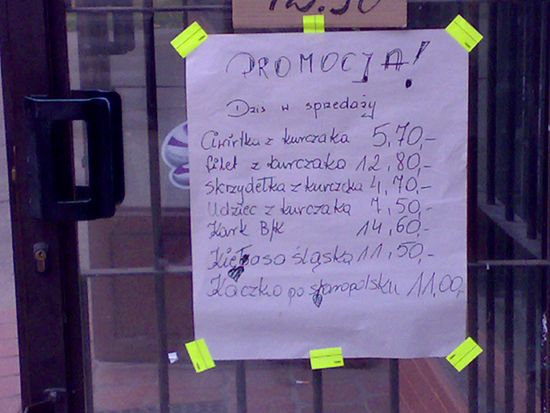 PROMOCJA!
Dziś w sprzedaży
Ćwirtka z kurczaka 5,70,-
filet z kurczaka 12,80,-
skrzydełka z kurczaka 4,70,-
Udziec z kurczaka 7,50,-
Kark B/K 14,60,-
Kiełbasa śląska 11,50,-
Kaczka po staropolsku 11,00,-